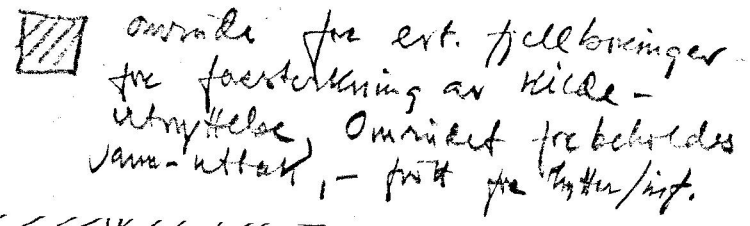 område for evt. fjellboringer
for forsterkning av kilde-
utnyttelse, Området forbeholdes
vann-uttak, - fritt for hytter/inf.